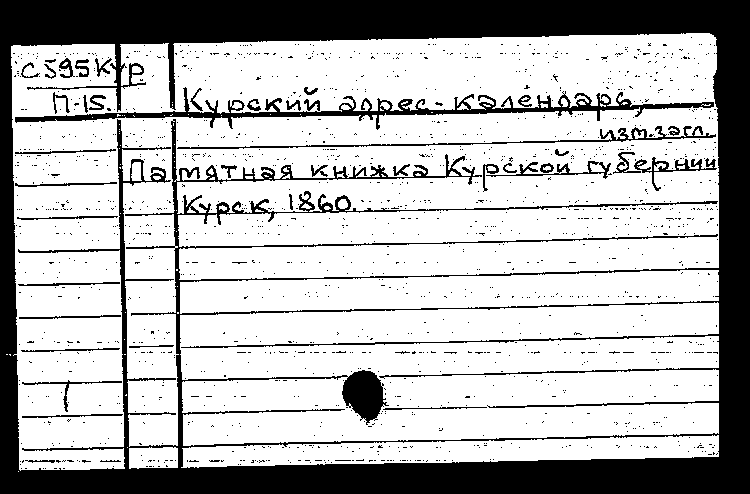 С595Кур
П-15.
Курский адрес-календарь,
изм.загл.
Памятная книжка Курской губернии
Курск, 1860.